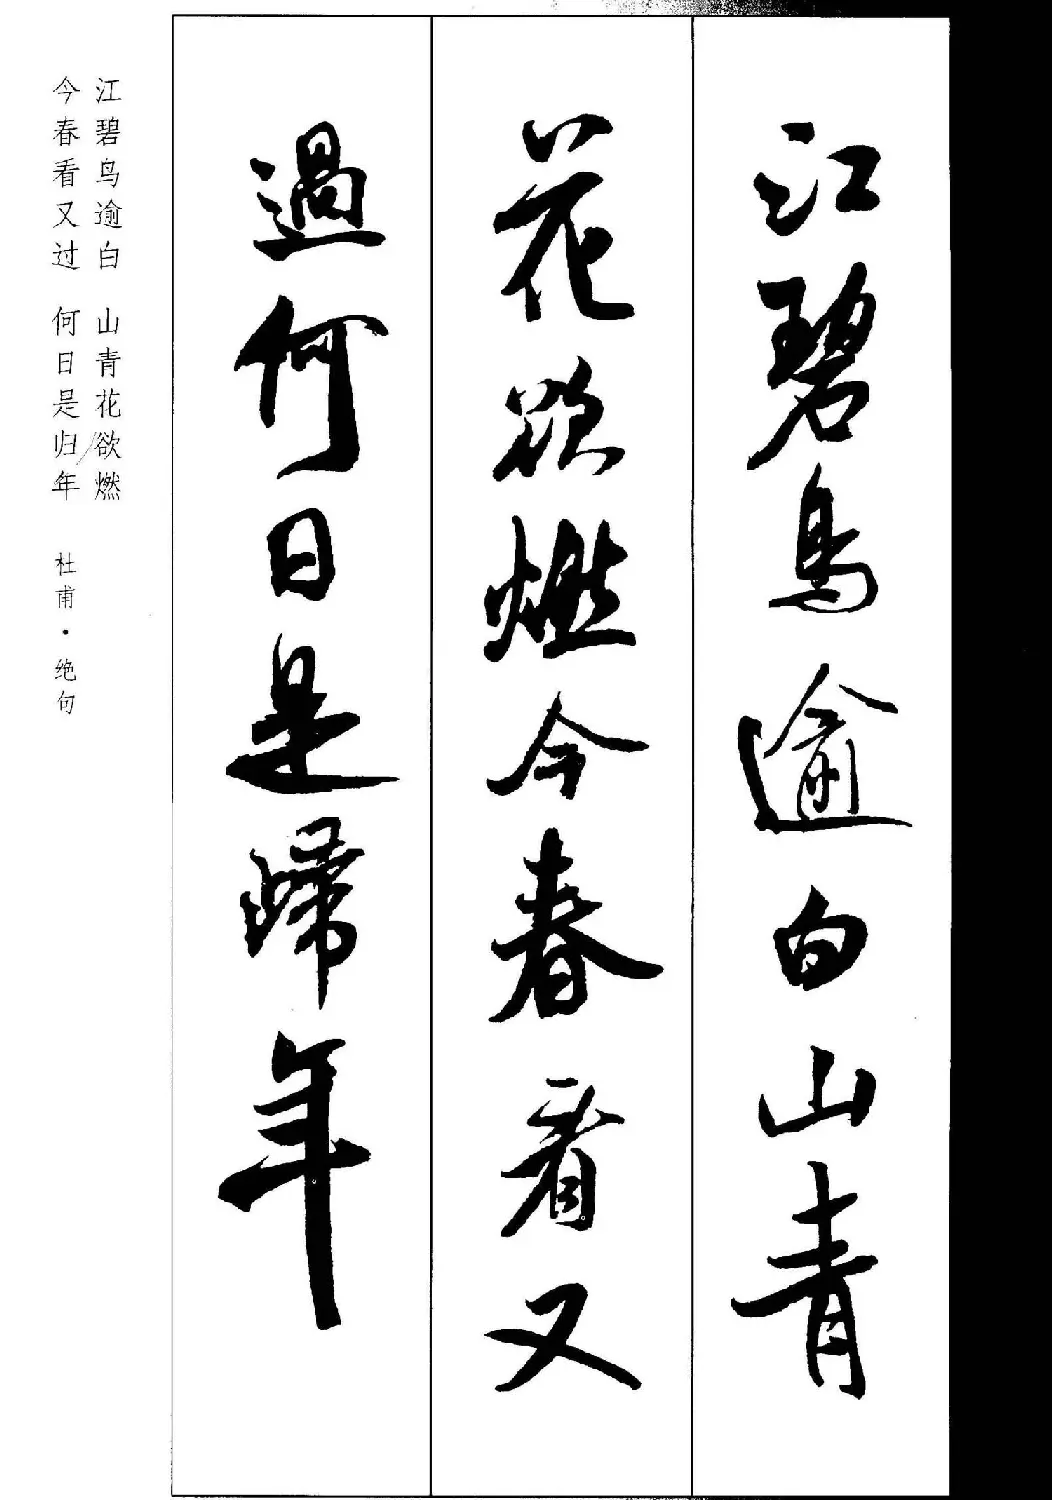 江碧鳥逾白山青
花欲燃今春看又
過何日是歸年
江碧鸟逾白 山青花欲燃
今春看又过 何日是归年 杜甫·绝句